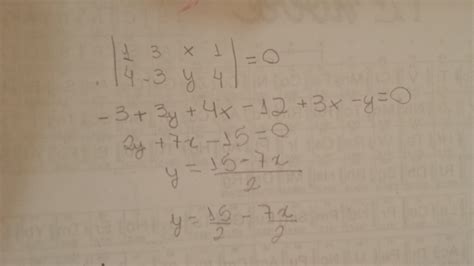 |1 3 x 1|
|4 -3 y 4| = 0
-3 + 3y + 4x - 12 + 3x - y = 0
2y + 7x - 15 = 0
y = (15 - 7x)/2
y = 15/2 - 7x/2